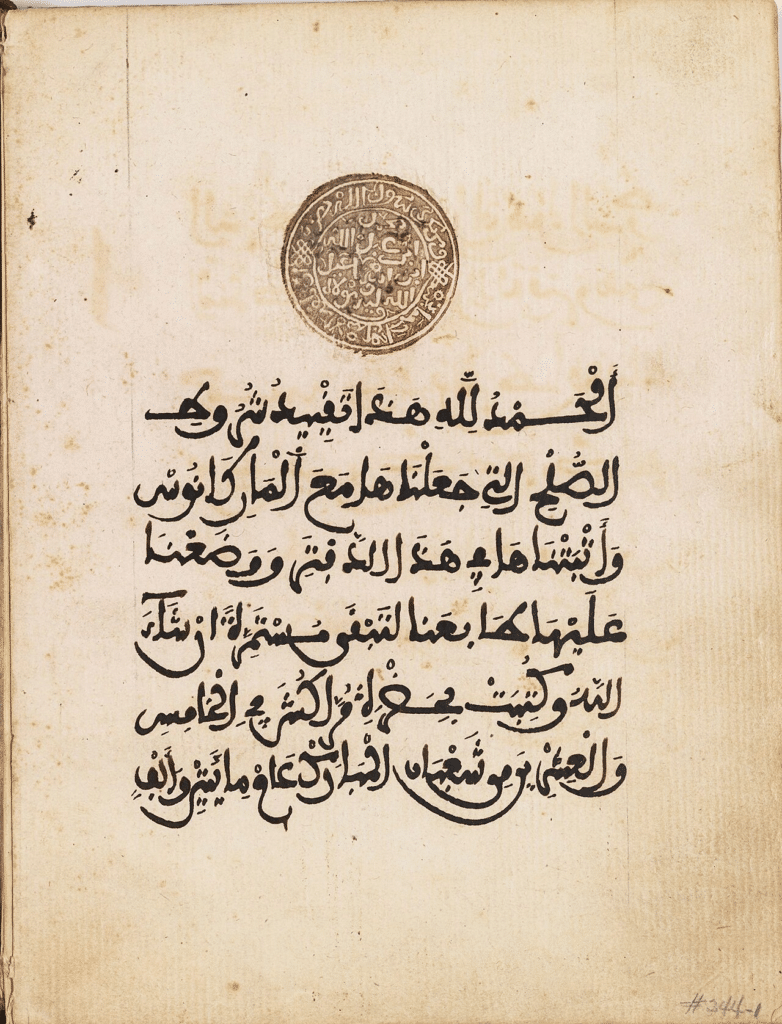 الحمد لله هذا تقييد شروط
الصلح التي جعلناها مع الماركانوس
وأثبتناها في هذا الدفتر ووضعنا
عليها طابعنا لتبقى مستمرة ان شاء
الله وكتبت بحضرة مراكش في الخامس
والعشرين من شعبان المبارك عام مائتين وألف
#344-1